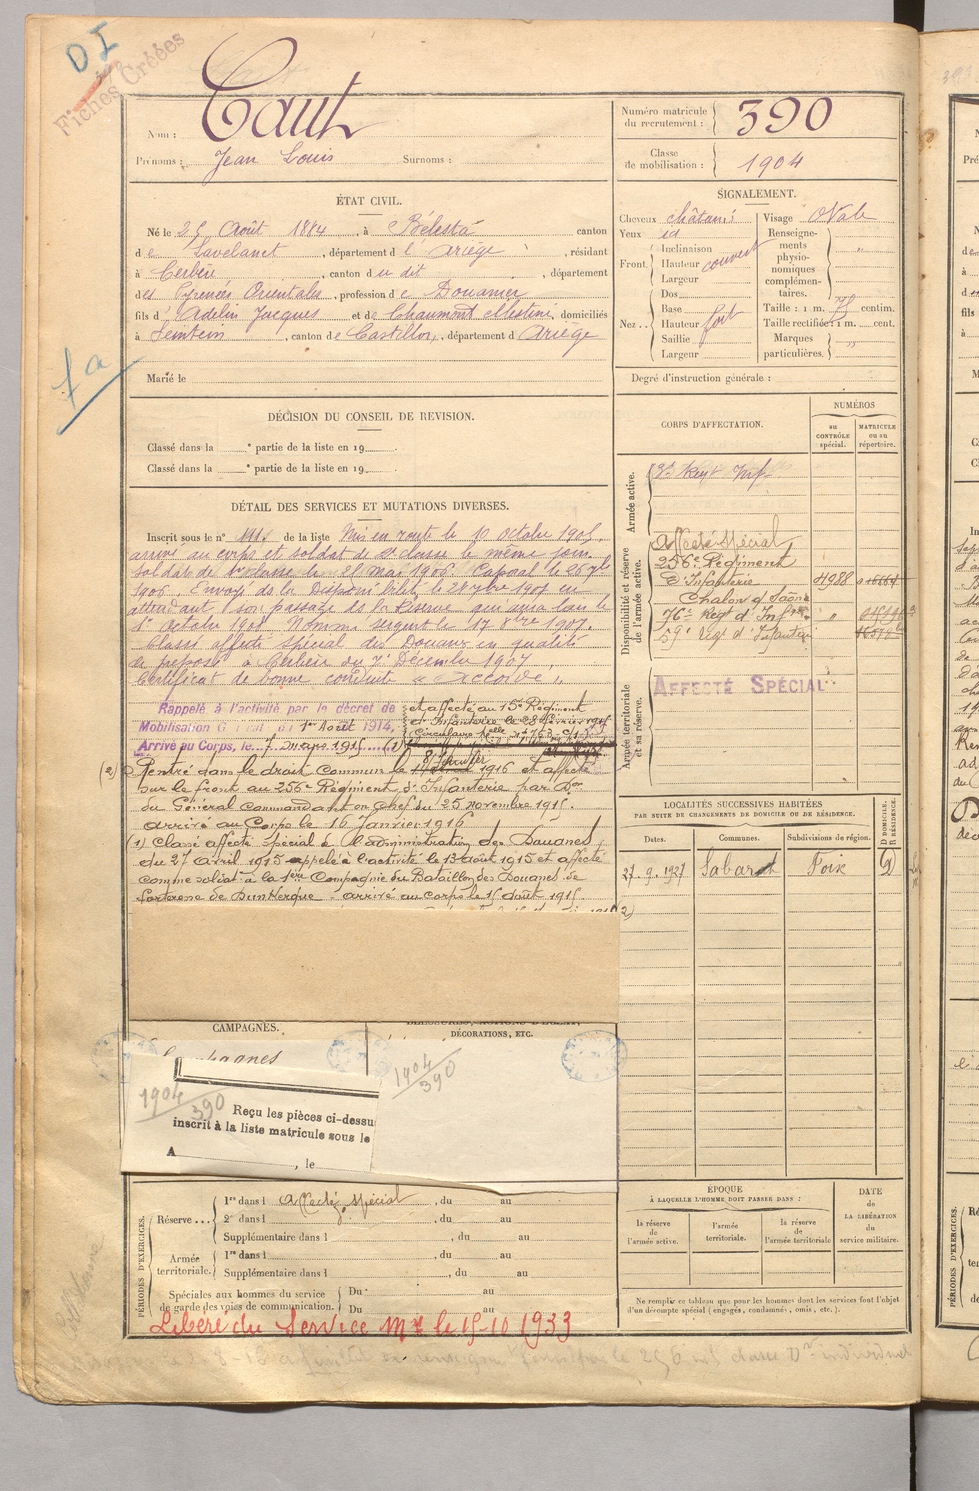 DI
Fiches Créées
Nom : Caut
Prénoms : Jean Louis Surnoms :
Numéro matricule du recrutement : 390
Classe de mobilisation : 1904
ÉTAT CIVIL.
Né le 25 Août 1884, à Bélesta canton
de Lavelanet, département de l'Ariège, résidant
à Cerbère, canton du dit, département
des Pyrénées Orientales, profession de Douanier
fils d'Adelin Jacques et de Chaumont Célestine, domiciliés
à Sentein, canton de Castillon, département d Ariège
Marié le
fa
SIGNALEMENT.
Cheveux châtains
Yeux id
Front. Inclinaison
Hauteur couvert
Largeur
Nez .. Dos
Base
Hauteur fort
Saillie
Largeur
Visage Ovale
Renseignements physionomiques complémentaires. "
Taille : 1 m. 75 centim.
Taille rectifiée : 1 m. cent.
Marques particulières. "
Degré d'instruction générale :
DÉCISION DU CONSEIL DE REVISION.
Classé dans la e partie de la liste en 19 .
Classé dans la e partie de la liste en 19 .
DÉTAIL DES SERVICES ET MUTATIONS DIVERSES.
Inscrit sous le n° de la liste Mis en route le 10 octobre 1905.
arrivé au corps et soldat de 2e classe le même jour.
Soldat de 1e classe le 28 mai 1906. Caporal le 26 7bre
1906. Envoyé dans la Disponibilité le 1907 en
attendant son passage dans la Réserve qui aura lieu le
1er octobre 1908. Nommé sergent le 17 8bre 1907.
Classé affecté spécial des Douanes en qualité
de préposé à Cerbère du 7 Décembre 1907
Certificat de bonne conduite "accordé"
Rappelé à l'activité par le décret de
Mobilisation Générale du 1er Août 1914,
Arrivé au Corps, le 7 mars 1915 (1)
et affecté au 15e Régiment
d'Infanterie le 28 février 1915
(2) Rentré dans le droit commun le 8 Janvier 1916 et affecté
sur le front au 256e Régiment d'Infanterie par don
du Général commandant en chef du 25 novembre 1915.
arrivé au Corps le 16 Janvier 1916
(1) Classé affecté spécial à l'administration des Douanes
du 27 avril 1915 rappelé à l'activité le 13 août 1915 et affecté
comme soldat à la 1ère Compagnie du Bataillon des Douanes de
forteresse de Dunkerque. arrivé au corps le 15 août 1915
(2)
CORPS D'AFFECTATION.
NUMÉROS
au CONTRÔLE spécial.
MATRICULE ou au répertoire.
Armée active.
Régt Inf
Disponibilité et réserve de l'armée active.
Affecté Spécial
256e Régiment
d'Infanterie 4988
Chalon s/ Saône
96e Régt d'Infrie "
59e Régt d'Infanterie
Armée territoriale et sa réserve.
AFFECTÉ SPÉCIAL
LOCALITÉS SUCCESSIVES HABITÉES
PAR SUITE DE CHANGEMENTS DE DOMICILE OU DE RÉSIDENCE.
Dates. Communes. Subdivisions de région. D DOMICILE. R RÉSIDENCE.
27.9.1927 Sabarat Foix D
CAMPAGNES.
DÉCORATIONS, ETC.
Campagnes
1904/390
1904/390
Reçu les pièces ci-dessu
inscrit à la liste matricule sous le
A , le
PÉRIODES D'EXERCICES.
Réserve ... 1re dans l Affecté spécial, du au
2e dans l , du au
Supplémentaire dans l , du au
Armée territoriale. 1re dans l , du au
Supplémentaire dans l , du au
Spéciales aux hommes du service de garde des voies de communication. Du au
Du au
Libéré du Service Mre le 15-10 1933
ÉPOQUE
À LAQUELLE L'HOMME DOIT PASSER DANS :
la réserve de l'armée active.
l'armée territoriale.
la réserve de l'armée territoriale
DATE DE LA LIBÉRATION du service militaire.
Ne remplir ce tableau que pour les hommes dont les services font l'objet
d'un décompte spécial (engagés, condamnés, omis, etc.).